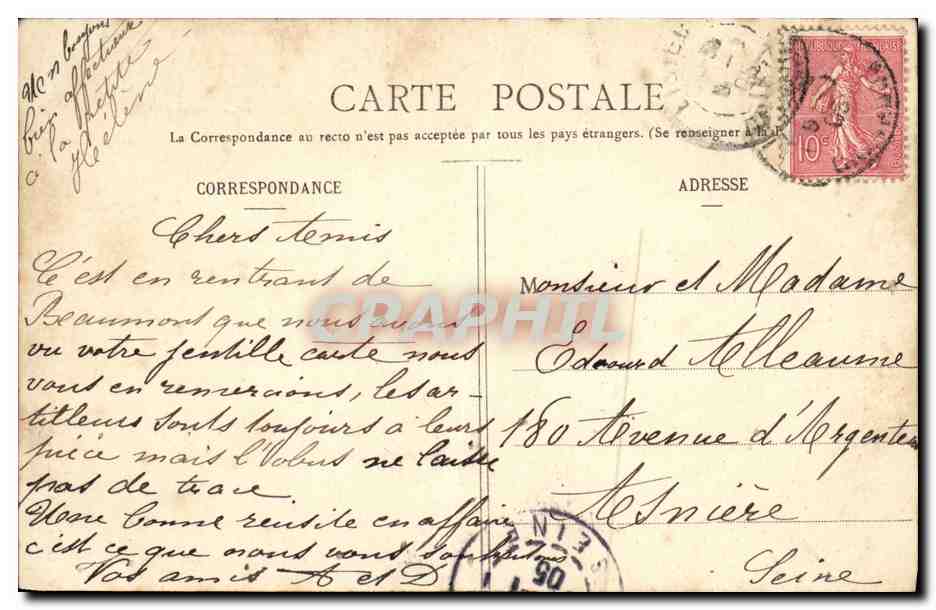 CARTE POSTALE
La Correspondance au recto n'est pas acceptée par tous les pays étrangers. (Se renseigner à la
CORRESPONDANCE
Un bonjour
bien affectueux
à la petite
Hélène
Chers Amis
C'est en rentrant de
Beaumont que nous avons
vu votre jentille carte nous
vous en remercions, les ar-
tilleurs sont toujours à leurs
pièce mais l'obus ne laisse
pas de trace
Une bonne réusite en affaire
c'est ce que nous vous souhaitons
Vos amis A et D
ADRESSE
Monsieur et Madame
Edouard Alleaume
180 Avenue d'Argenteu
Asnière
Seine
REPUBLIQUE FRANÇAISE
10c
SEINE
05
CRAPHIL